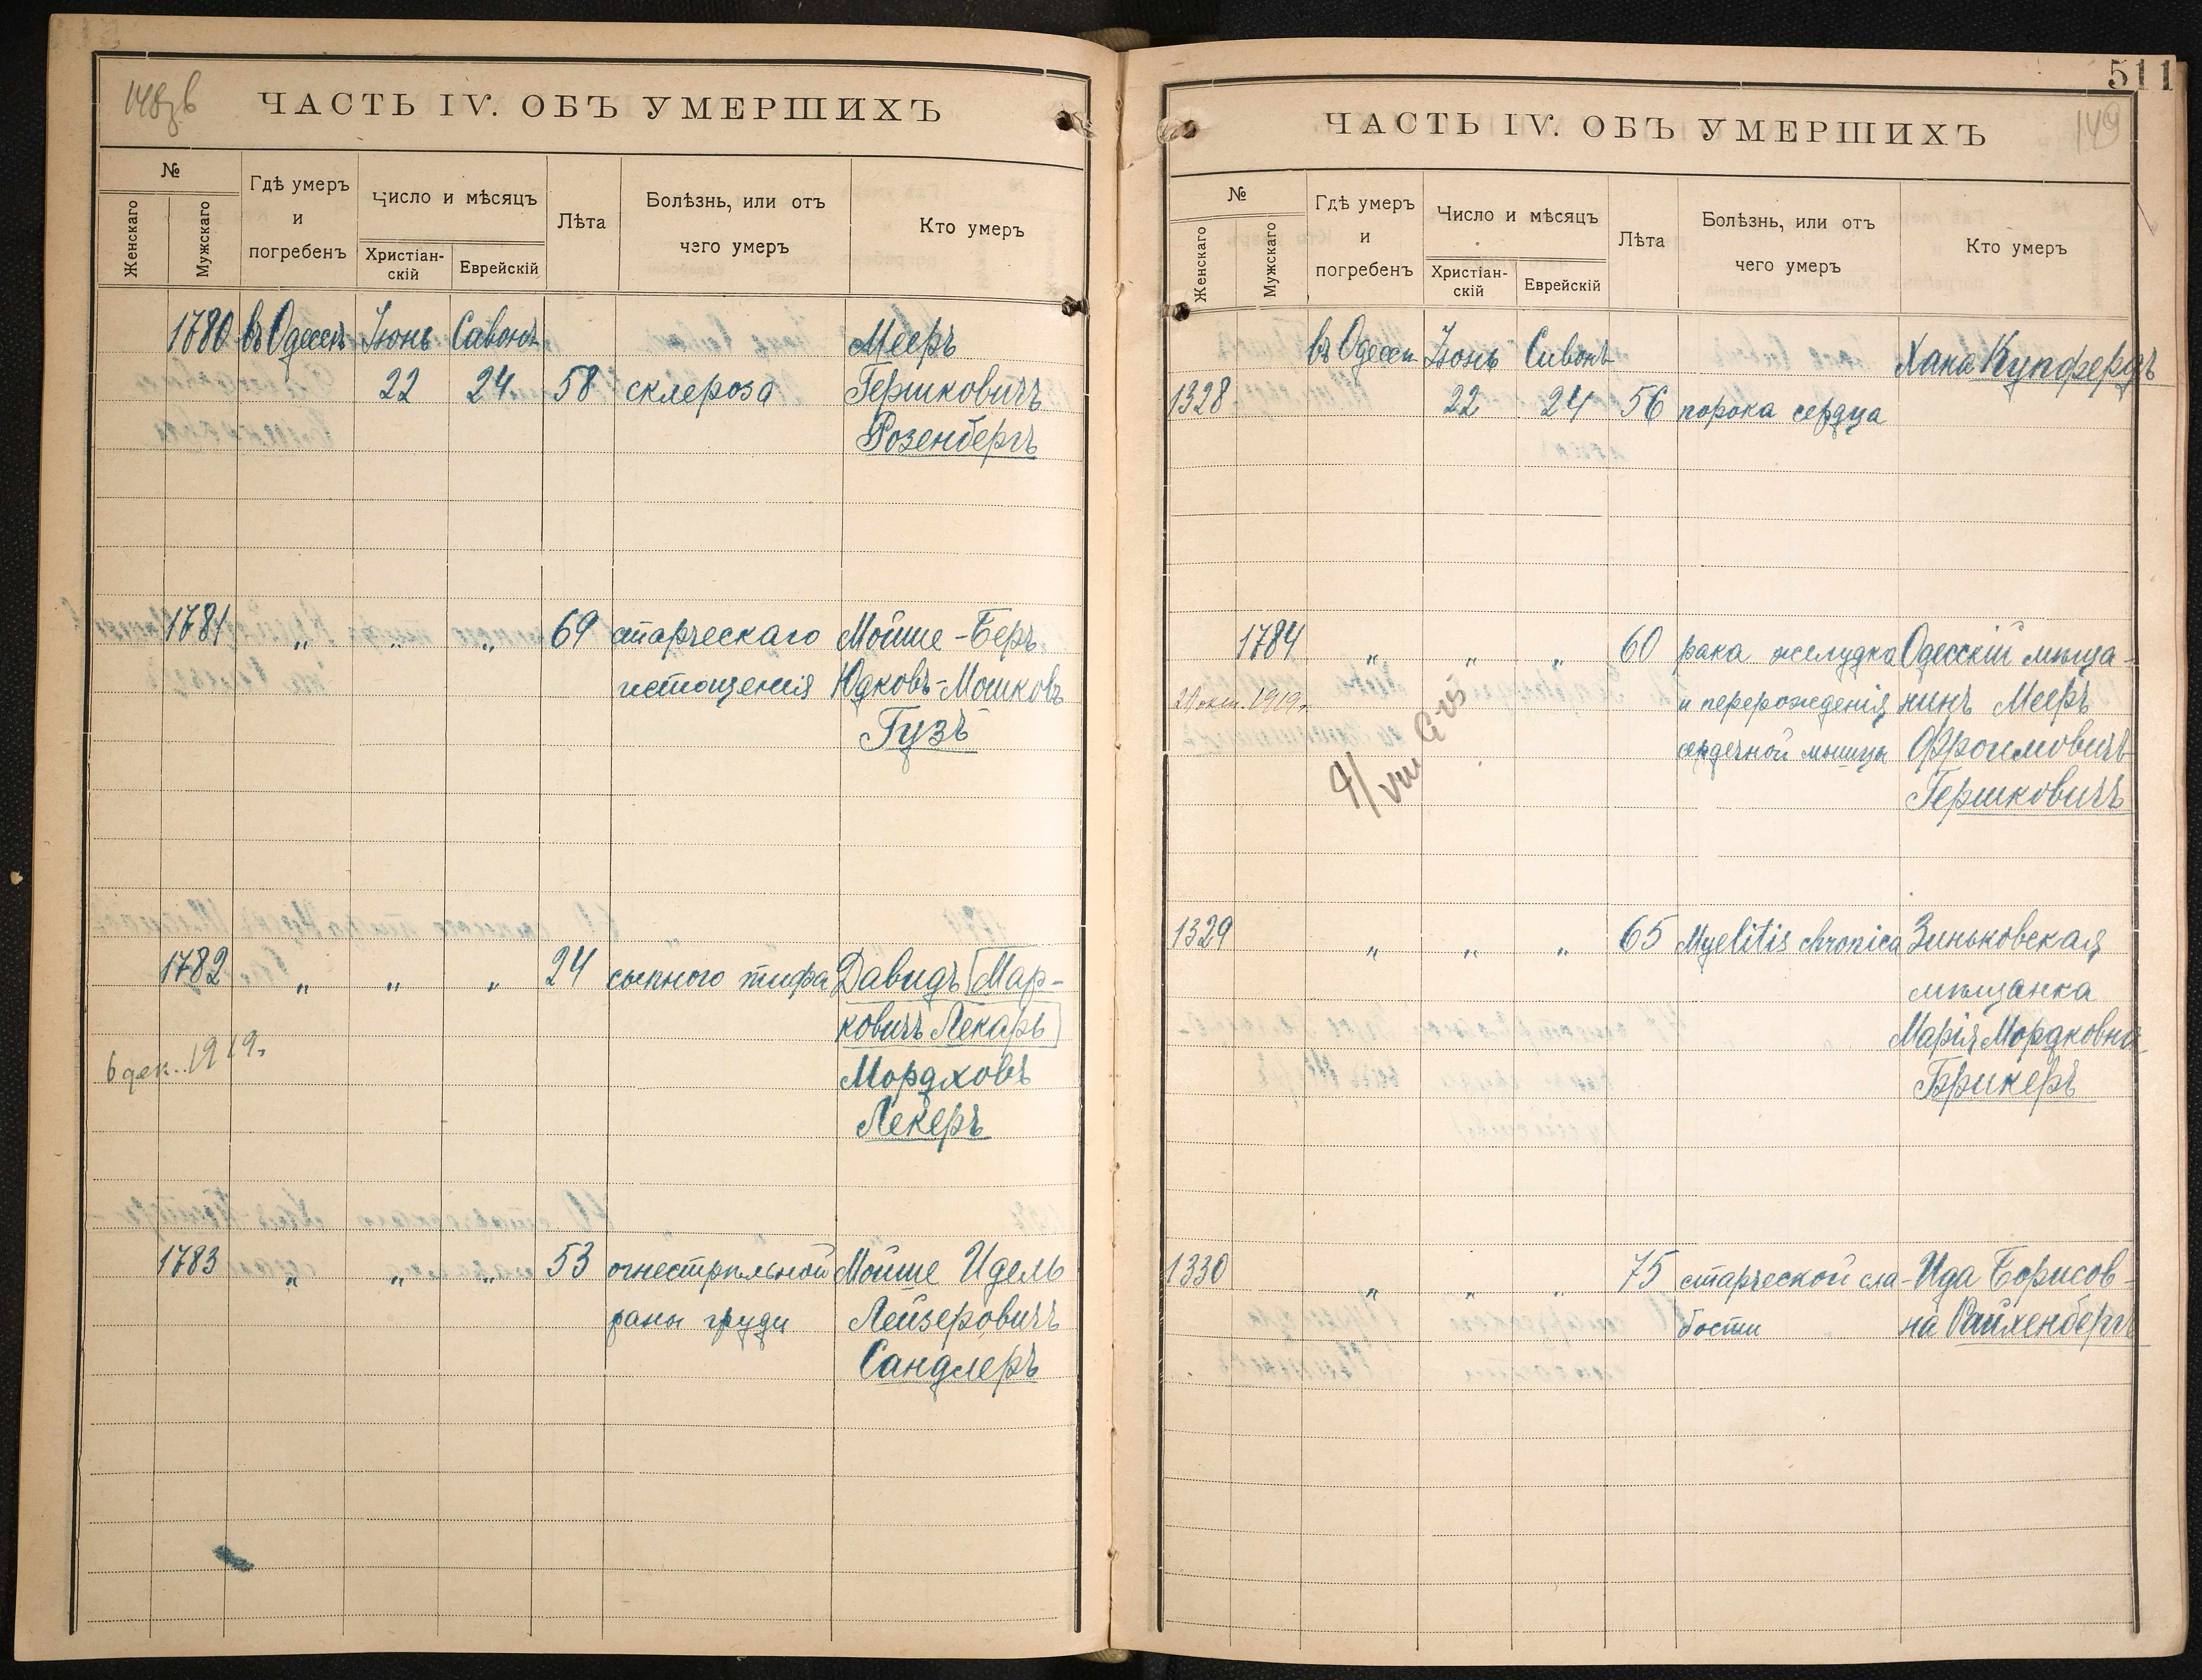 ЧАСТЬ IV. ОБЪ УМЕРШИХЪ
№
Женскаго
Мужскаго
Гдѣ умеръ
и
погребенъ
Число и мѣсяцъ
Христіан-
скій
Еврейскій
Лѣта
Болѣзнь, или отъ
чего умеръ
Кто умеръ
1780 въ Одессѣ Іюнь Сивонъ Мееръ
22 24 58 склероза Гершковичъ
Розенбергъ
1781 „ „ „ 69 старческаго Мойше-Беръ
истощенія Юдковъ-Мошковъ
Гузъ
1782 „ „ „ 24 сыпного тифа Давидъ [Мар-
ковичъ Лекарь]
6 дек. 1919. Мордховъ
Лекеръ
1783 „ „ „ 53 огнестрѣльной Мойше Идель
раны груди Лейзеровичъ
Сандлеръ
511
149
ЧАСТЬ IV. ОБЪ УМЕРШИХЪ
№
Женскаго
Мужскаго
Гдѣ умеръ
и
погребенъ
Число и мѣсяцъ
Христіан-
скій
Еврейскій
Лѣта
Болѣзнь, или отъ
чего умеръ
Кто умеръ
въ Одессѣ Іюнь Сивонъ Хана Купфердъ
1328 22 24 56 порока сердца
1784 „ „ „ 60 рака желудка Одесскій мѣща-
1919. и перерожденія нинъ Мееръ
сердечной мышцы Фроимовичъ
Гершковичъ
9/VIII
1329 „ „ „ 65 Myelitis chronica Зиньковская
мѣщанка
Марія Мордковна
Брикеръ
1330 „ „ „ 75 старческой сла- Ида Борисов-
бости на Райхенбергъ